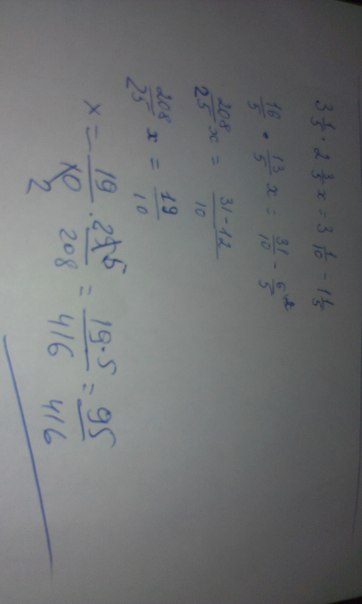 3 1/5 · 2 3/5 x = 3 1/10 - 1 1/5
16/5 · 13/5 x = 31/10 - 6/5 2
208/25 x = 31-12/10
208/25 x = 19/10
x = 19/10 2 · 25 5/208 = 19·5/416 = 95/416